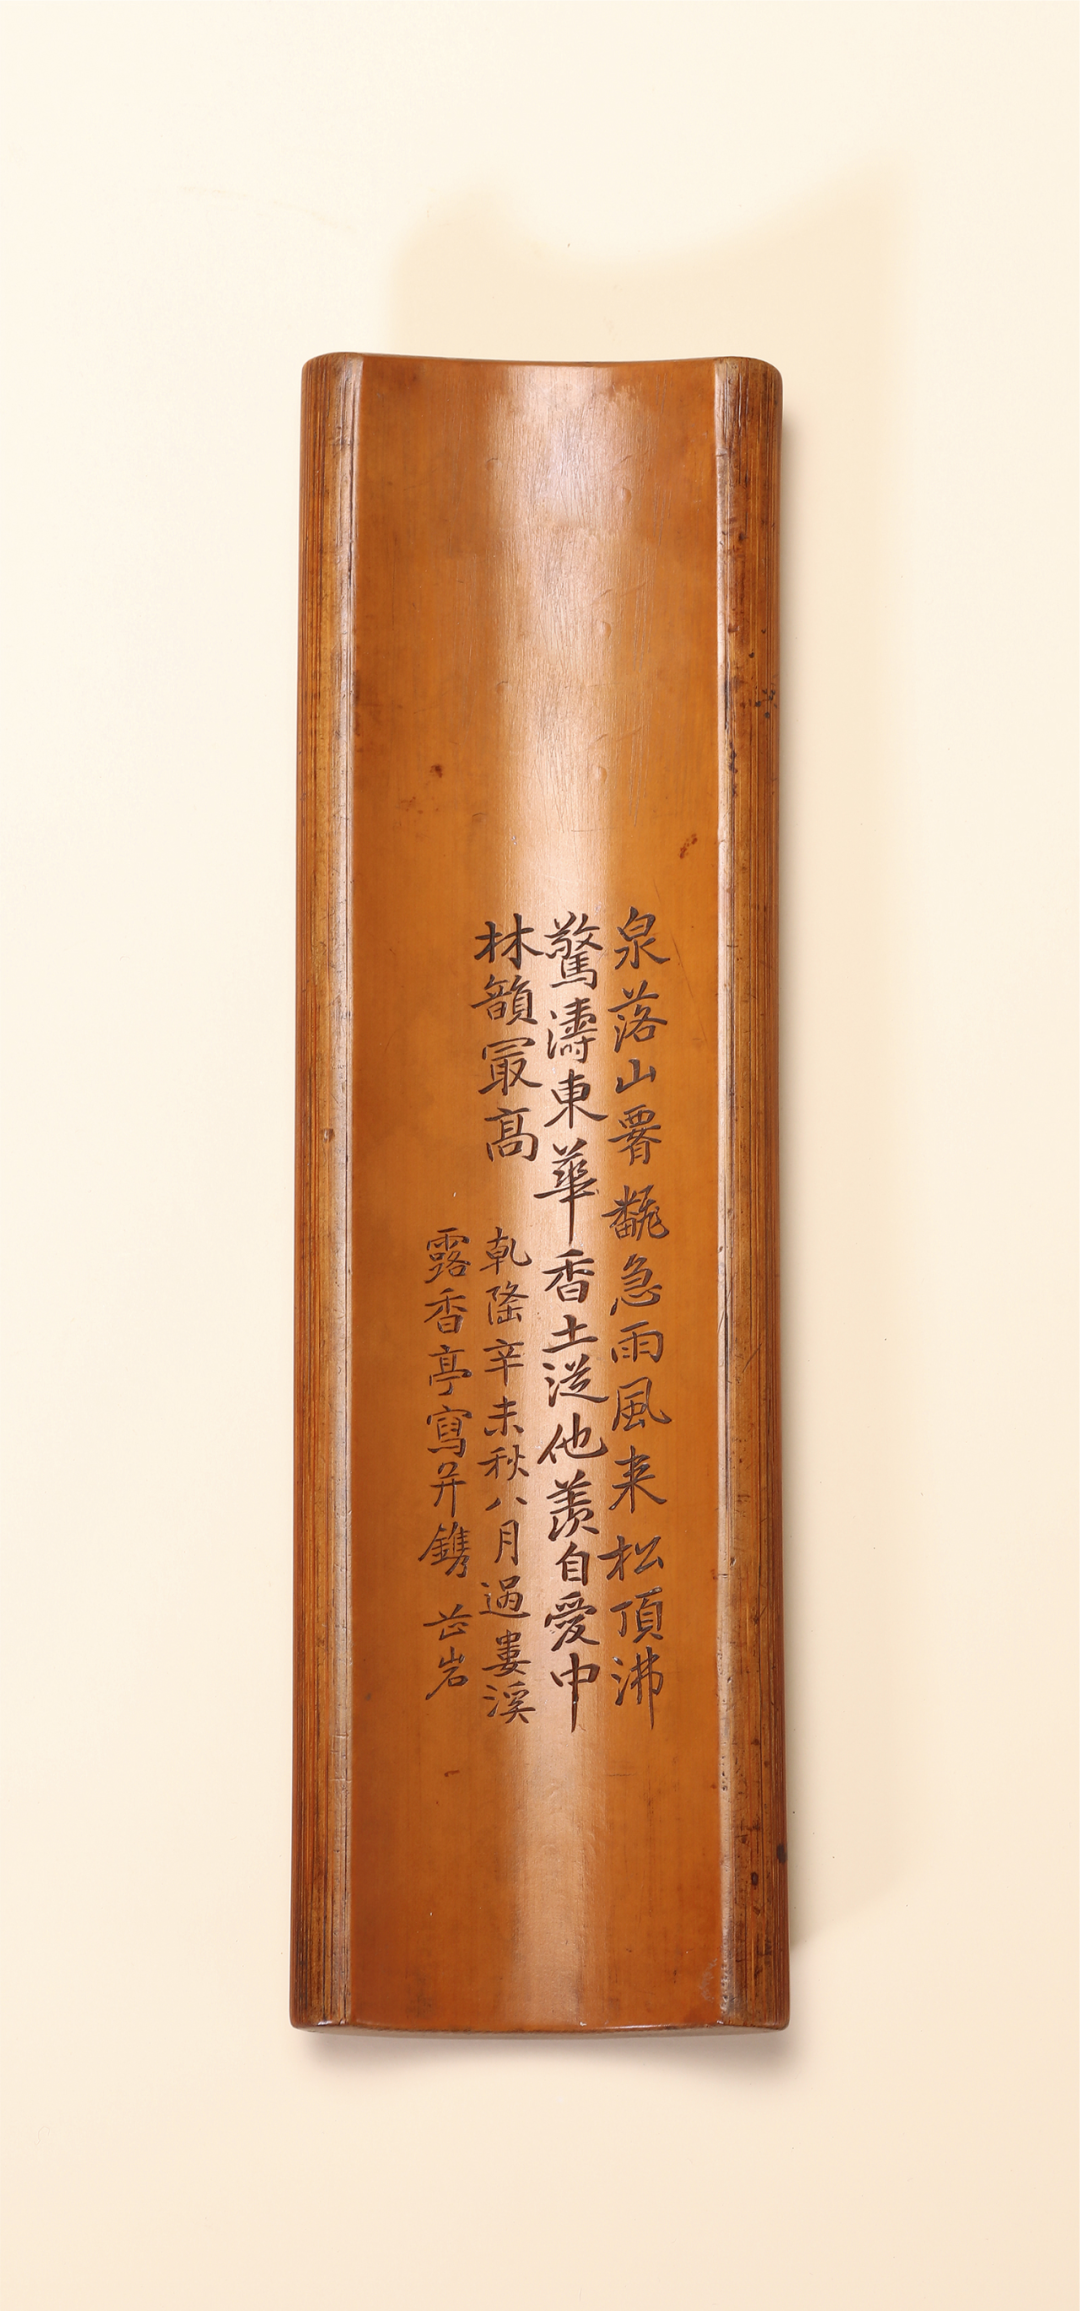 泉落山腰飜急雨風来松頂沸
驚濤東華香土從他羨自愛中
林韻最高
乾隆辛未秋八月過婁溪
露香亭寫并鐫 芷岩